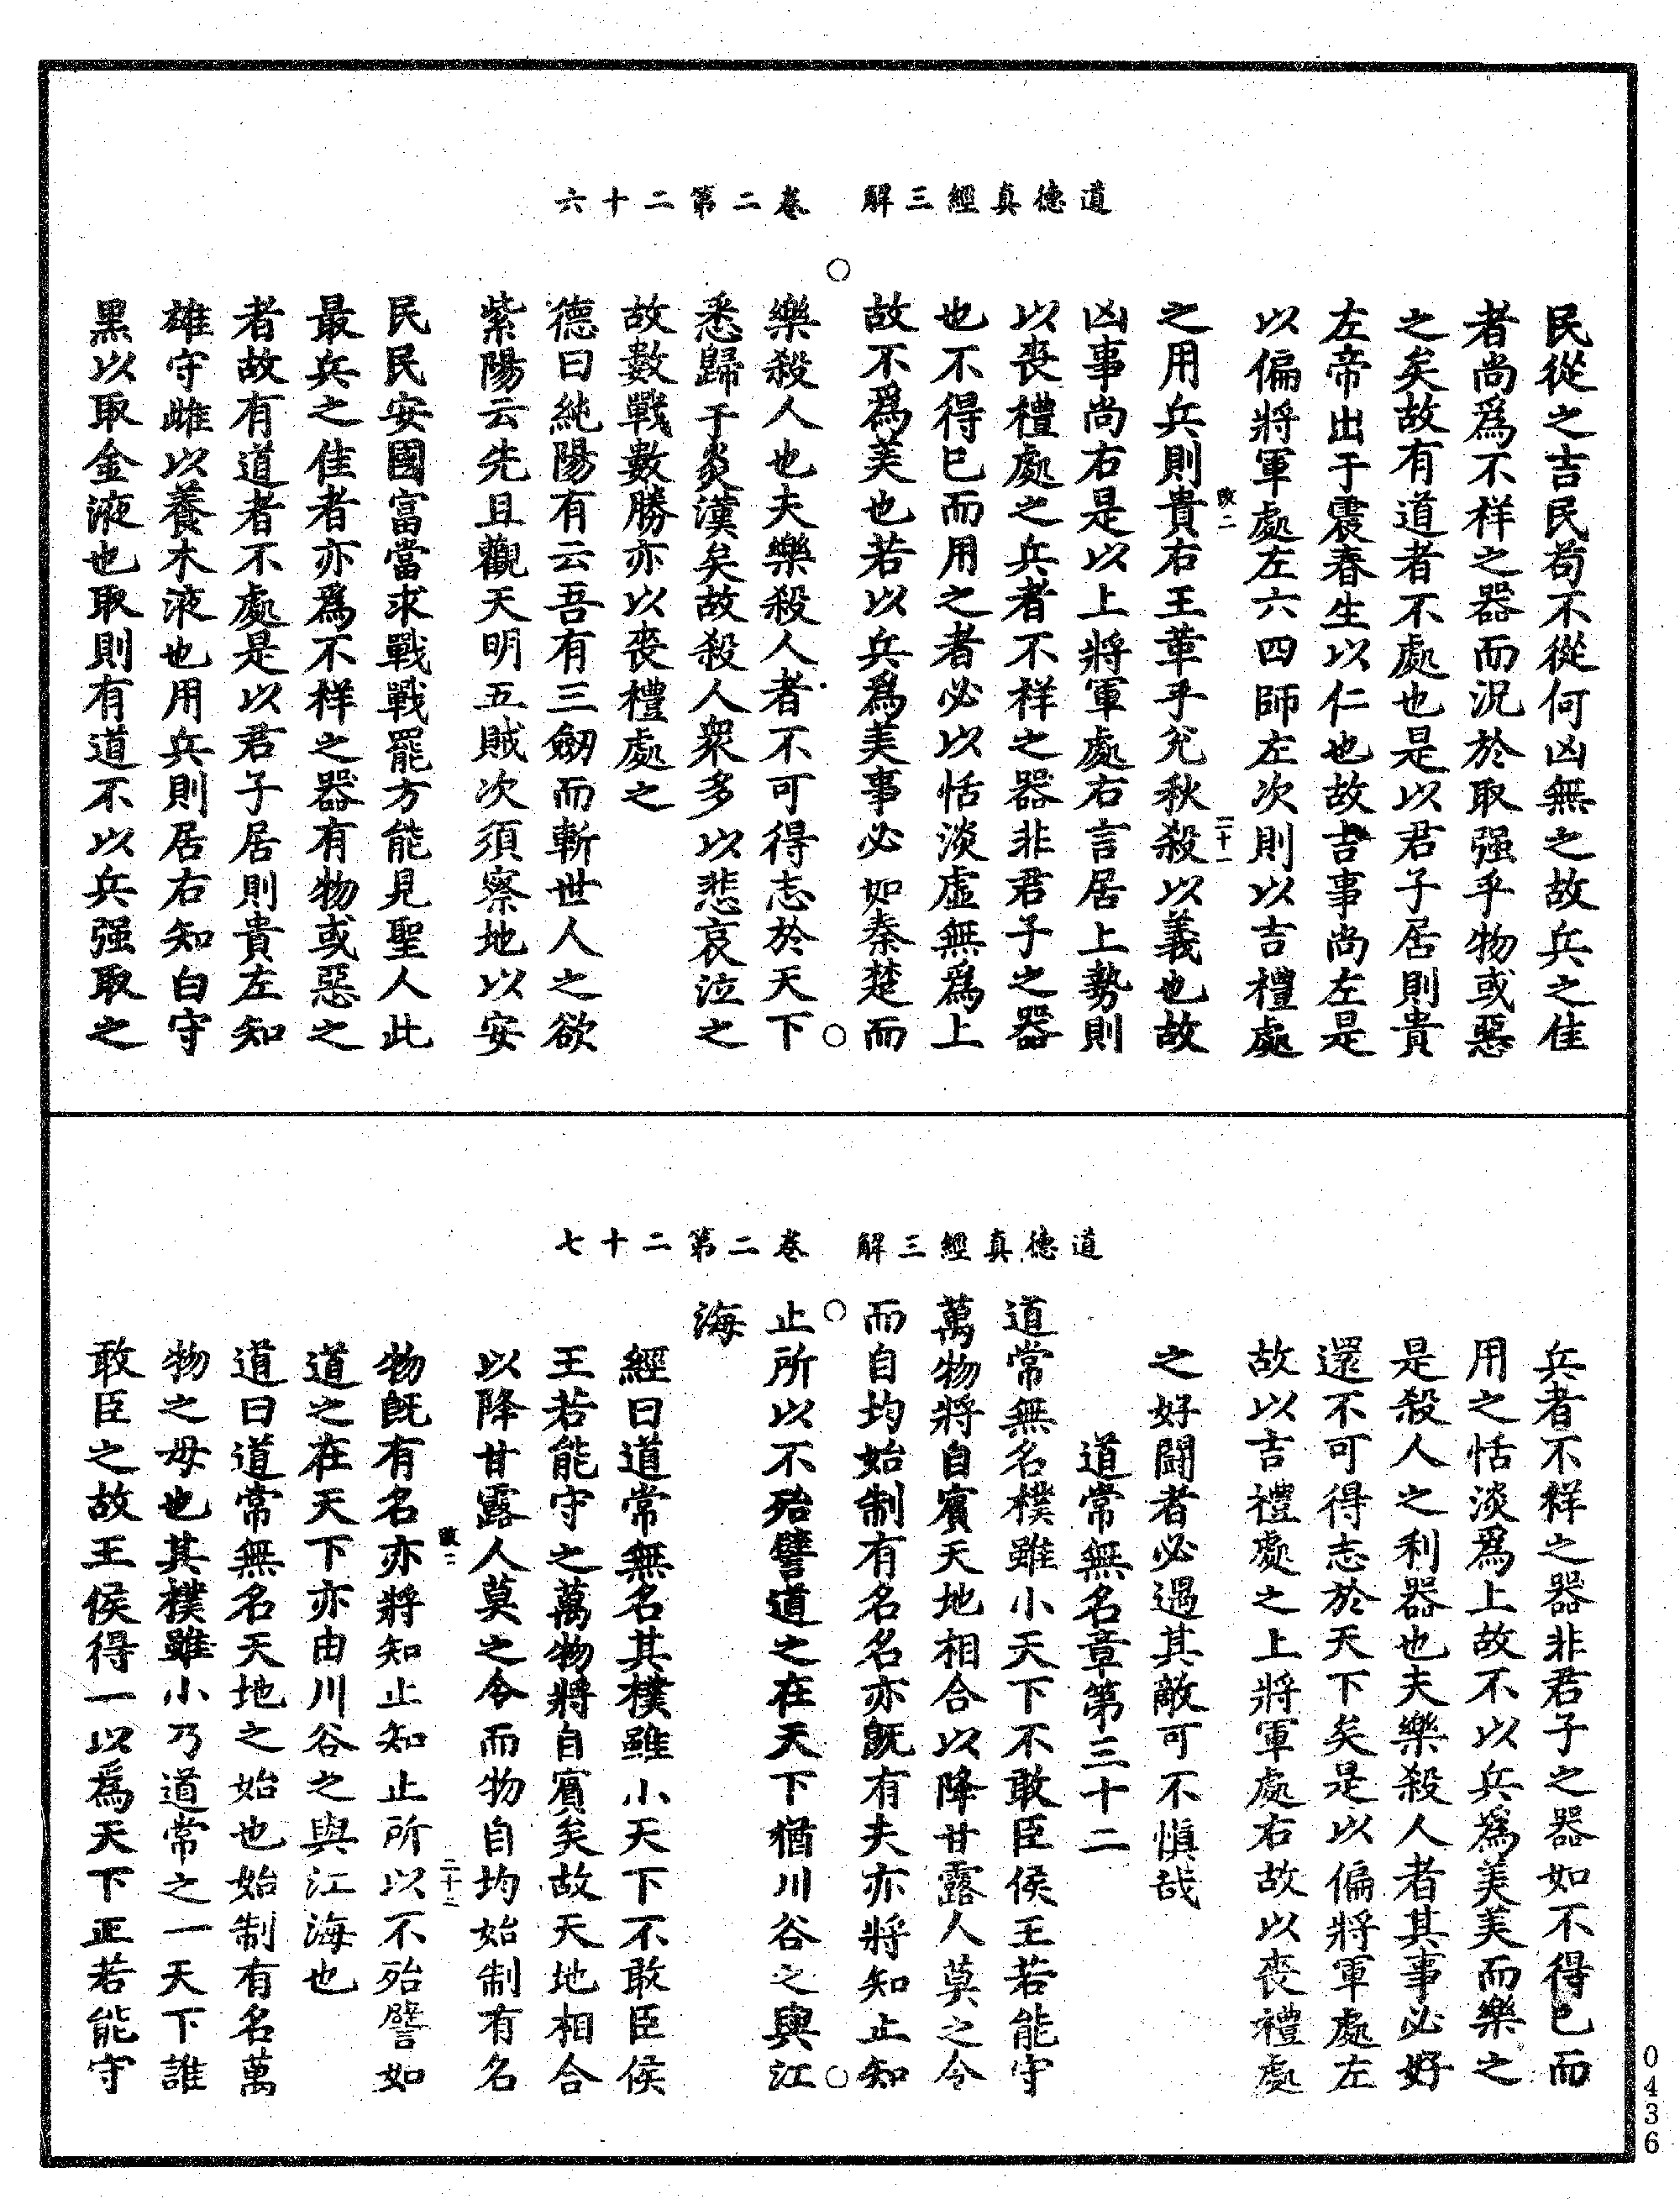 道德真經三解　卷二第二十六
民從之吉民苟不從何凶無之故兵之佳
者尚爲不祥之器而況於取强乎物或惡
之矣故有道者不處也是以君子居則貴
左帝出于震春生以仁也故吉事尚左是
以偏將軍處左六四師左次則以吉禮處
二十一
之用兵則貴右王莗乎兊秋殺以義也故
凶事尚右是以上將軍處右言居上勢則
以喪禮處之兵者不祥之器非君子之器
也不得已而用之者必以恬淡虛無爲上
故不爲美也若以兵爲美事必如秦楚而
樂殺人也夫樂殺人者不可得志於天下
悉歸于炎漢矣故殺人衆多以悲哀泣之
故數戰數勝亦以喪禮處之
德曰純陽有云吾有三劒而斬世人之欲
紫陽云先且觀天明五賊次須察地以安
民民安國富當求戰戰罷方能見聖人此
最兵之佳者亦爲不祥之器有物或惡之
者故有道者不處是以君子居則貴左知
雄守雌以養木液也用兵則居右知白守
黑以取金液也取則有道不以兵强取之
道德真經三解　卷二第二十七
兵者不祥之器非君子之器如不得已而
用之恬淡爲上故不以兵爲美美而樂之
是殺人之利器也夫樂殺人者其事必好
還不可得志於天下矣是以偏將軍處左
故以吉禮處之上將軍處右故以喪禮處
之好鬪者必遇其敵可不慎哉
道常無名章第三十二
道常無名樸雖小天下不敢臣侯王若能守
萬物將自賓天地相合以降甘露人莫之令
而自均始制有名名亦旣有夫亦將知止知
止所以不殆譬道之在天下猶川谷之與江
海
經曰道常無名其樸雖小天下不敢臣侯
王若能守之萬物將自賓矣故天地相合
以降甘露人莫之令而物自均始制有名
二十二
物旣有名亦將知止知止所以不殆譬如
道之在天下亦由川谷之與江海也
道曰道常無名天地之始也始制有名萬
物之母也其樸雖小乃道常之一天下誰
敢臣之故王侯得一以爲天下正若能守
0436